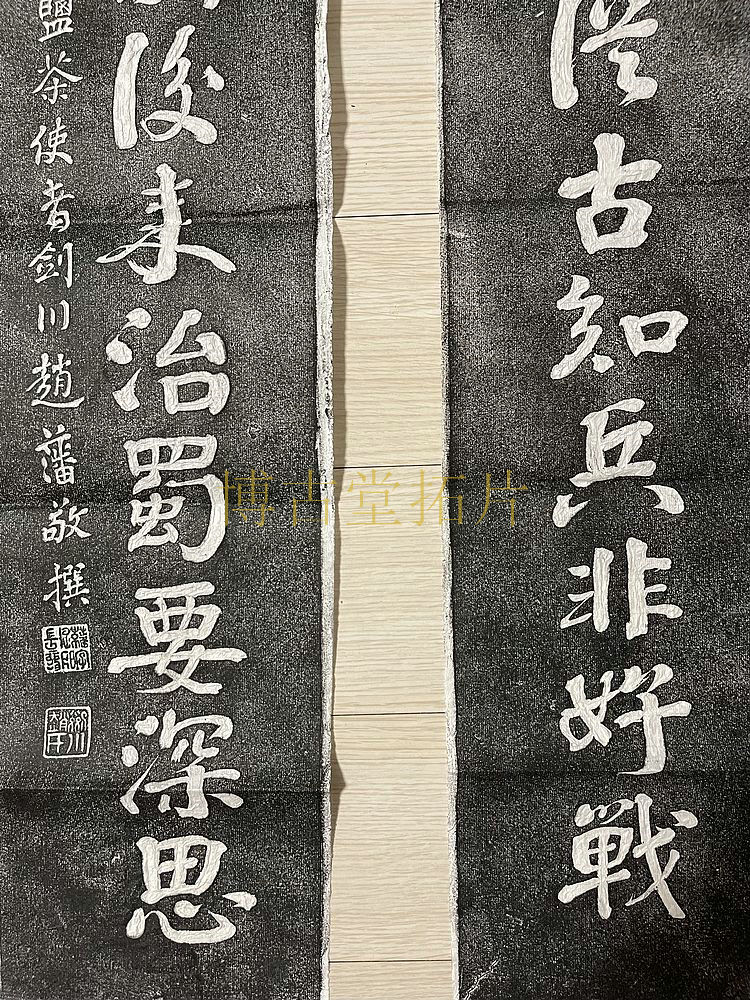 從古知兵非好戰
後來治蜀要深思
鹽茶使者劍川趙藩敬撰
博古堂拓片